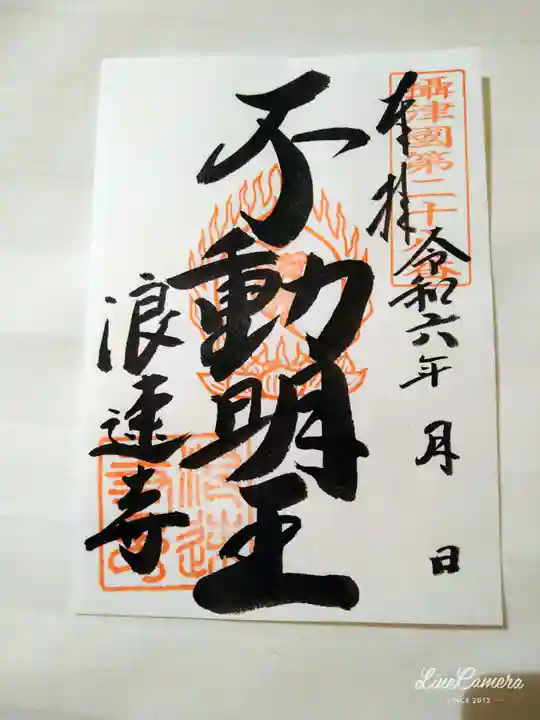 奉拝
攝津國第二十
令和六年 月 日
不動明王
浪速寺
LineCamera
SINCE 2012